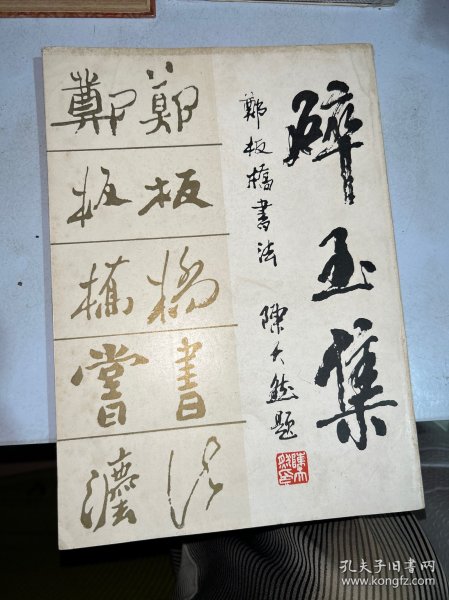 碎玉集
鄭板橋書法 陳大然題
鄭板橋書法
鄭板橋書灋
孔夫子旧书网
www.kongfz.com